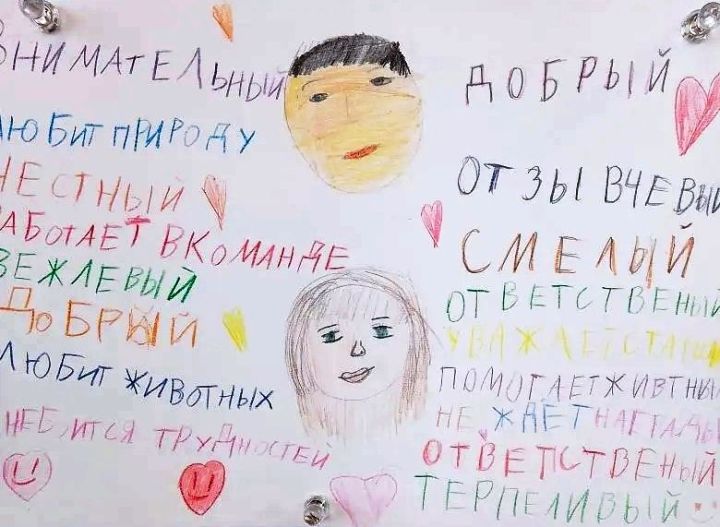 ВНИМАТЕЛЬНЫЙ
ЛЮБИТ ПРИРОДУ
ЧЕСТНЫЙ
РАБОТАЕТ В КОМАНДЕ
ВЕЖЛЕВЫЙ
ДОБРЫЙ
ЛЮБИТ ЖИВОТНЫХ
НЕБ ИТСЯ ТРУДНОСТЕЙ
ДОБРЫЙ
ОТЗЫВЧЕВЫЙ
СМЕЛЫЙ
ОТВЕТСТВЕНЫЙ
УВАЖАЕТ СТАРШ
ПОМОГАЕТ ЖИВТНЫ
НЕ ЖДЁТ НАГРАДЫ
ОТВЕТСТВЕНЫЙ
ТЕРПЕЛИВЫЙ